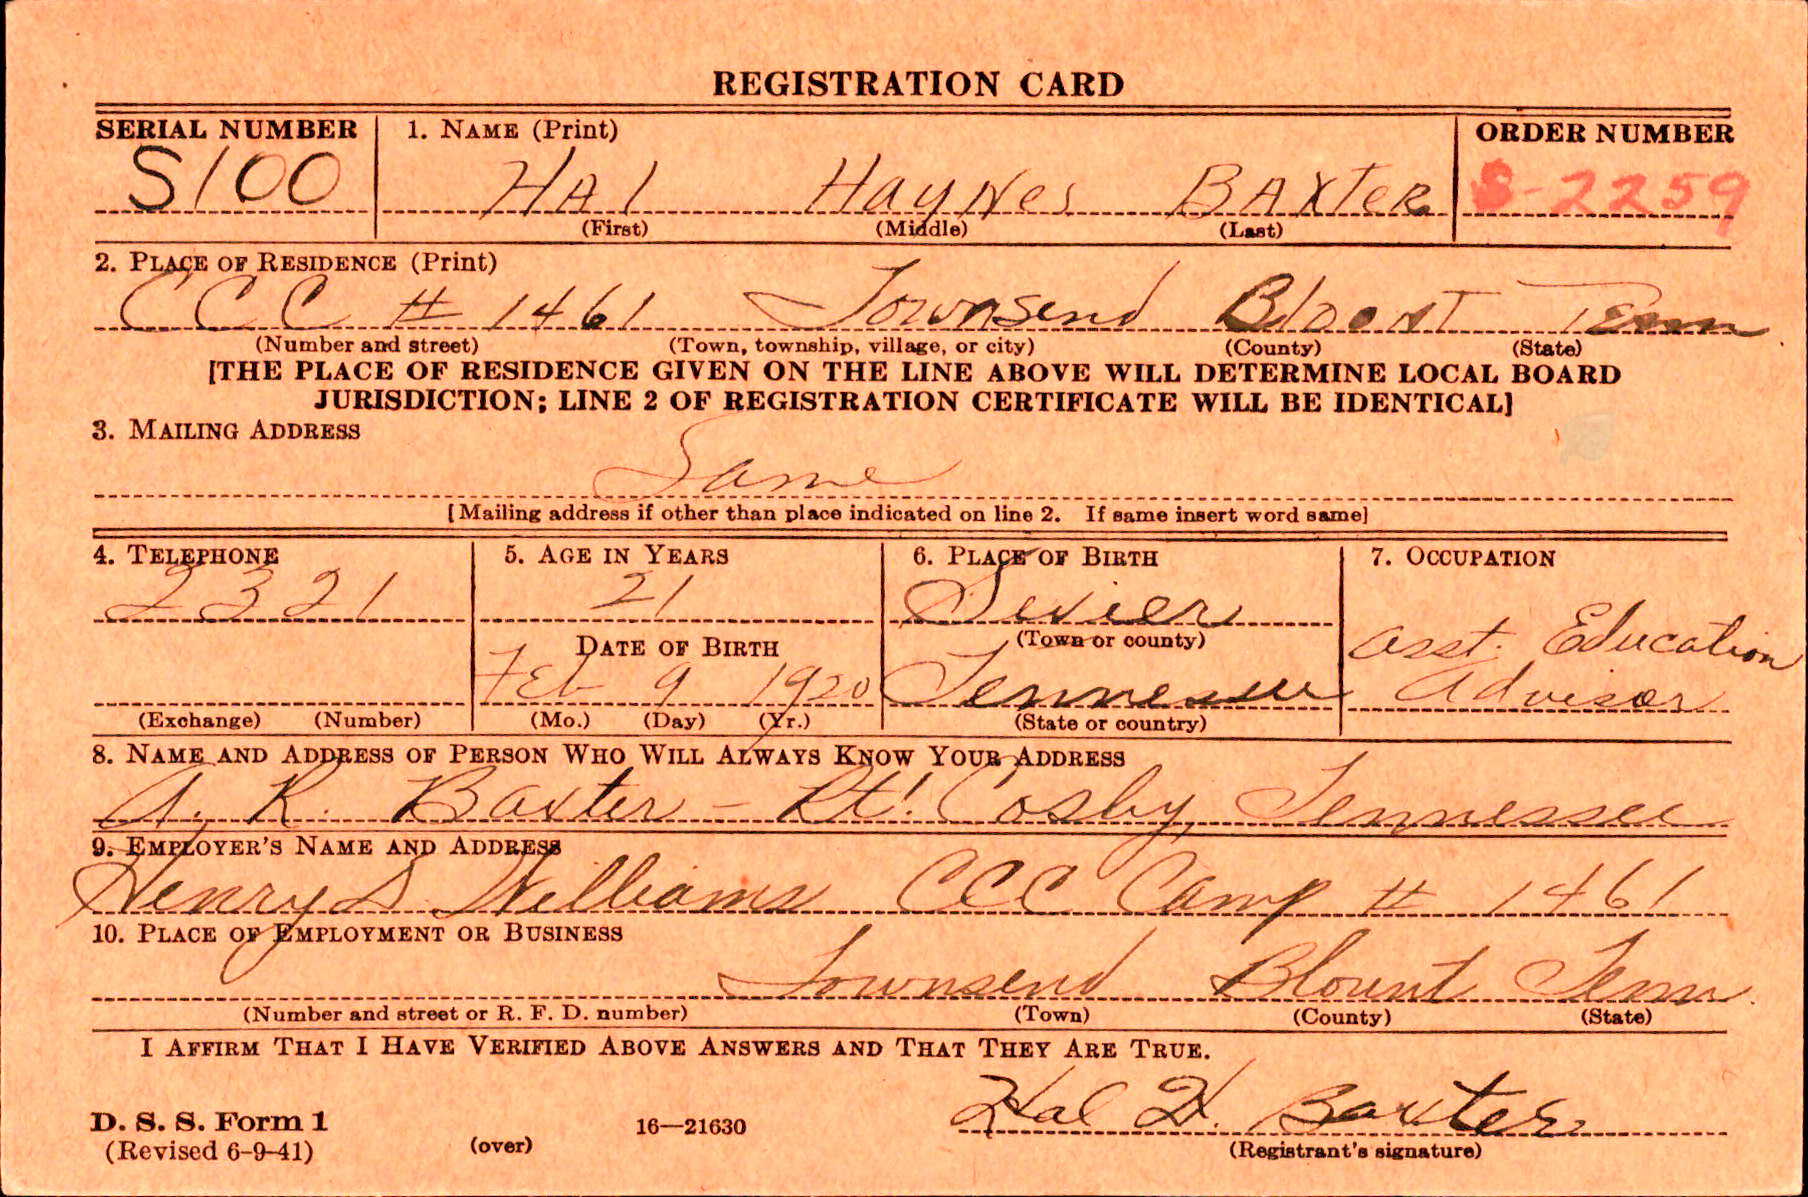 REGISTRATION CARD
SERIAL NUMBER 1. NAME (Print) ORDER NUMBER
S100 HAl HayNes BAXTER S-2259
(First) (Middle) (Last)
2. PLACE OF RESIDENCE (Print)
CCC # 1461 Townsend Blount Tenn
(Number and street) (Town, township, village, or city) (County) (State)
[THE PLACE OF RESIDENCE GIVEN ON THE LINE ABOVE WILL DETERMINE LOCAL BOARD
JURISDICTION; LINE 2 OF REGISTRATION CERTIFICATE WILL BE IDENTICAL]
3. MAILING ADDRESS
Same
[Mailing address if other than place indicated on line 2. If same insert word same]
4. TELEPHONE 5. AGE IN YEARS 6. PLACE OF BIRTH 7. OCCUPATION
2321 21 Sevier
(Town or county)
Asst. Education
DATE OF BIRTH
Feb 9 1920 Tennessee Advisor
(Exchange) (Number) (Mo.) (Day) (Yr.) (State or country)
8. NAME AND ADDRESS OF PERSON WHO WILL ALWAYS KNOW YOUR ADDRESS
A. R. Baxter - Rt1. Cosby, Tennessee
9. EMPLOYER'S NAME AND ADDRESS
Henry S. Williams CCC Camp # 1461
10. PLACE OF EMPLOYMENT OR BUSINESS
Townsend Blount Tenn.
(Number and street or R. F. D. number) (Town) (County) (State)
I AFFIRM THAT I HAVE VERIFIED ABOVE ANSWERS AND THAT THEY ARE TRUE.
Hal H. Baxter
D. S. S. Form 1
(Revised 6-9-41) (over) 16—21630 (Registrant's signature)